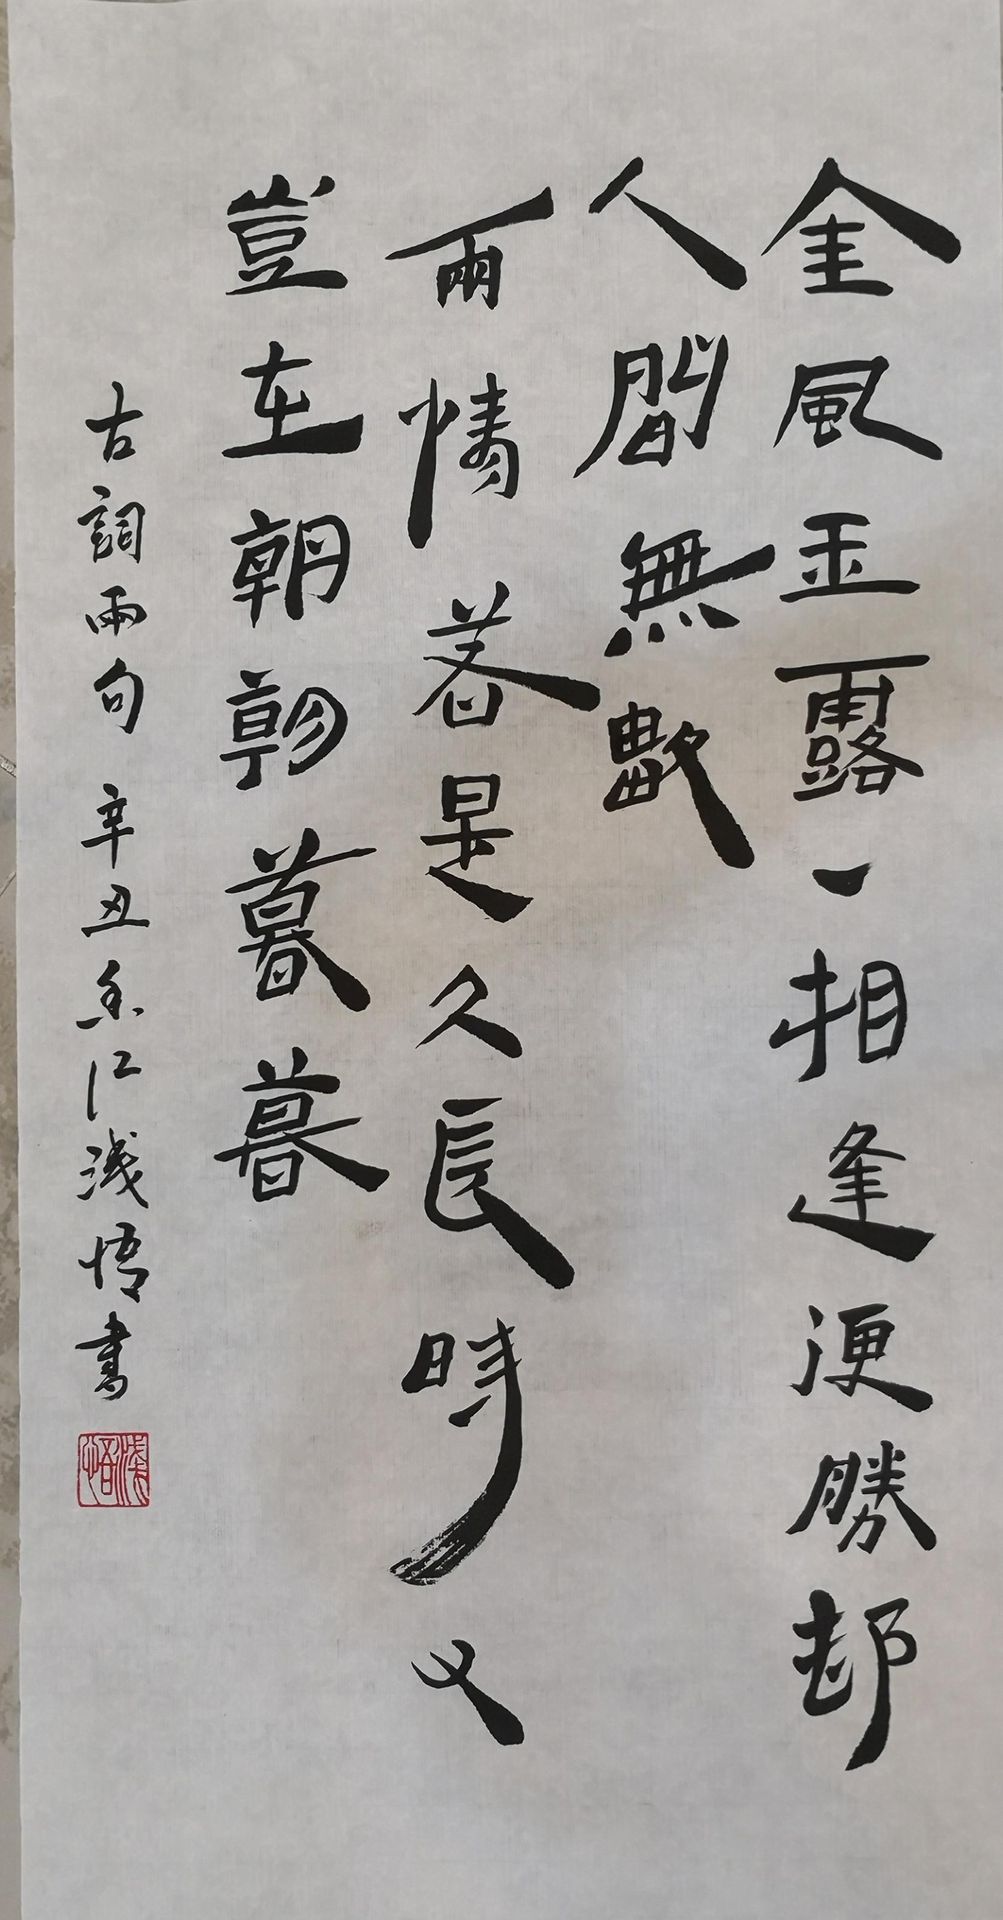 金風玉露一相逢便勝却
人間無數
兩情若是久長時又
豈在朝朝暮暮
古詞兩句辛丑香江淺悟書
淺悟